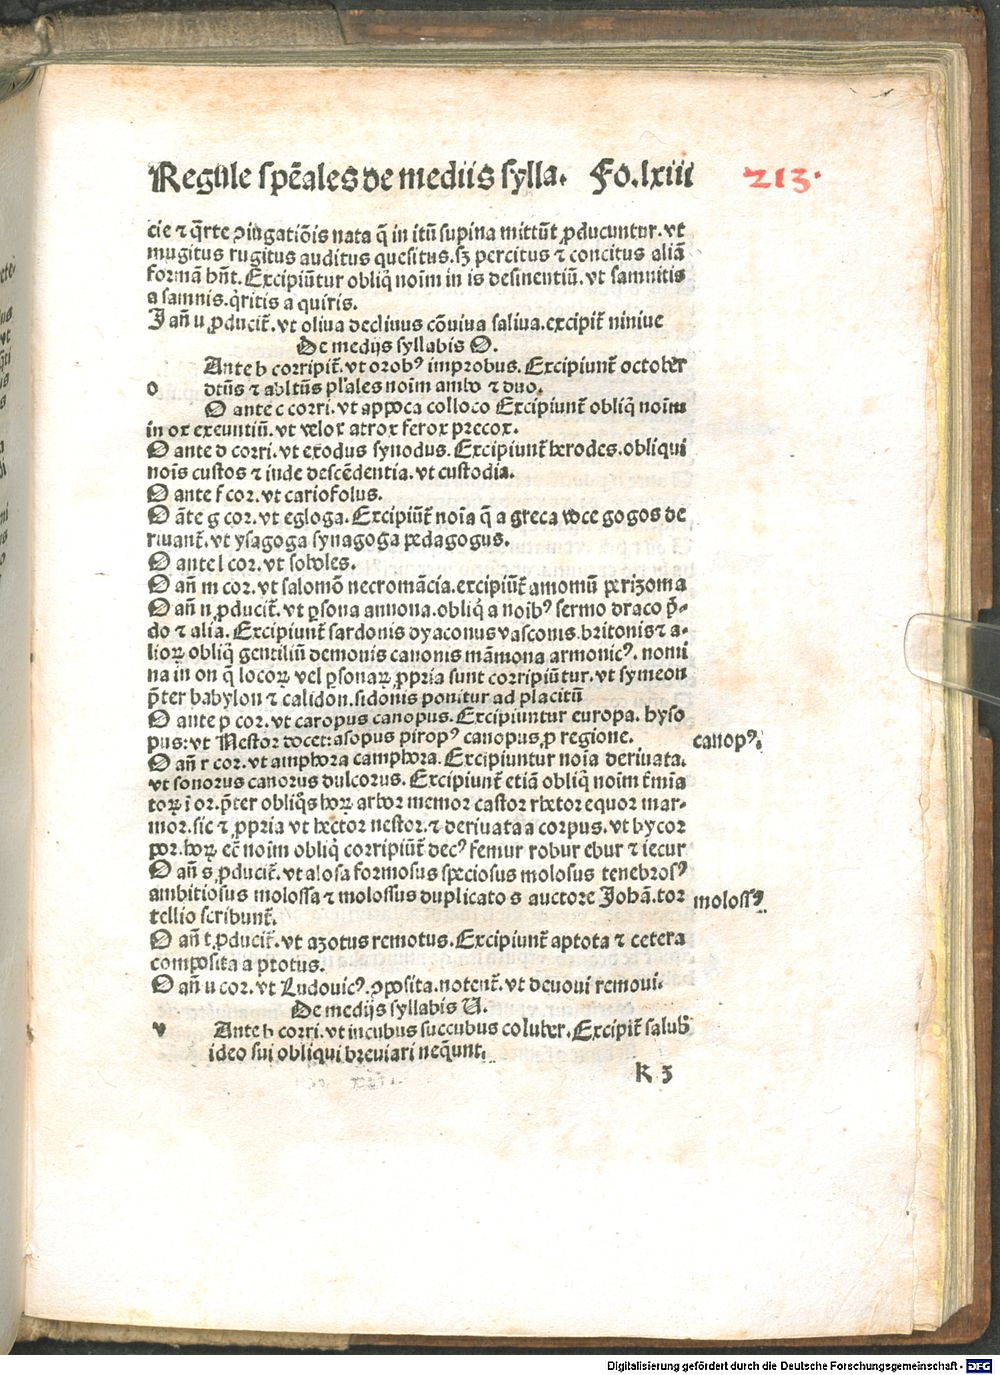 Regule spēales de mediis sylla. Fo.lxiii 213.
cie ⁊ q̄rte ꝯiugatiōis nata q̄ in itū supina mittūt ꝓducuntur. vt
mugitus rugitus auditus quesitus. sꝫ percitus ⁊ concitus aliā
formā hn̄t. Excipiūtur obliq̄ noīm in is desinentiū. vt samnitis
a samnis. q̄ritis a quiris.
I an̄ u ꝓducit̄. vt oliua decliuus cōuiua saliua. excipit̄ niniue
De medijs syllabis O.
Ante b corripit̄. vt orobꝰ improbus. Excipiunt̄ october
o octūs ⁊ abltūs pl'ales noīm ambo ⁊ duo.
O ante c corri. vt appoca colloco Excipiunt̄ obliq̄ noīm
in ox exeuntiū. vt velox atrox ferox precox.
O ante d corri. vt exodus synodus. Excipiunt̄ herodes. obliqui
noīs custos ⁊ inde descēdentia. vt custodia.
O ante f cor. vt cariofolus.
O āte g cor. vt egloga. Excipiūt̄ noīa q̄ a greca voce gogos de
riuant̄. vt ysagoga synagoga pedagogus.
O ante l cor. vt soboles.
O an̄ m cor. vt salomō necromācia. excipiūt̄ amomū perizoma
O an̄ n ꝓducit̄. vt ꝑsona annona. obliq̄ a noibꝰ sermo draco p̄-
do ⁊ alia. Excipiunt̄ sardonis dyaconus vasconis. britonis ⁊ a-
lioꝝ obliq̄ gentiliū demonis canonis māmona armonicꝰ. nomi
na in on q̄ locoꝝ vel ꝑsonaꝝ ꝓpria sunt corripiūtur. vt symeon
p̄ter babylon ⁊ calidon. sidonis ponitur ad placitū
O ante p cor. vt caropus canopus. Excipiuntur europa. hyso
pus: vt Nestor docet: asopus piropꝰ canopus ꝓ regione. canopꝰ.
O an̄ r cor. vt amphora camphora. Excipiuntur noīa deriuata.
vt sonorus canorus dulcorus. Excipiunt̄ etiā obliq̄ noīm t̄mīa
toꝝ ī or. p̄ter obliq̄s hoꝝ arbor memor castor rhetor equor mar-
mor. sic ⁊ ꝓpria vt hector nestor. ⁊ deriuata a corpus. vt bycor
por. hoꝝ ec̄ noīm obliq̄ corripiūt̄ decꝰ femur robur ebur ⁊ iecur
O an̄ s ꝓducit̄. vt alosa formosus speciosus molosus tenebrosꝰ
ambitiosus molossa ⁊ molossus duplicato s auctore Johā. tor molossꝰ.
tellio scribunt̄.
O an̄ t ꝓducit̄. vt azotus remotus. Excipiunt̄ aptota ⁊ cetera
composita a ptotus.
O an̄ u cor. vt Ludouicꝰ. ꝯposita. notent̄. vt deuoui remoui.
De medijs syllabis U.
v Ante b corri. vt incubus succubus coluber. Excipit̄ salub̄
ideo sui obliqui breuiari neq̄unt.
k 3
Digitalisierung gefördert durch die Deutsche Forschungsgemeinschaft - DFG